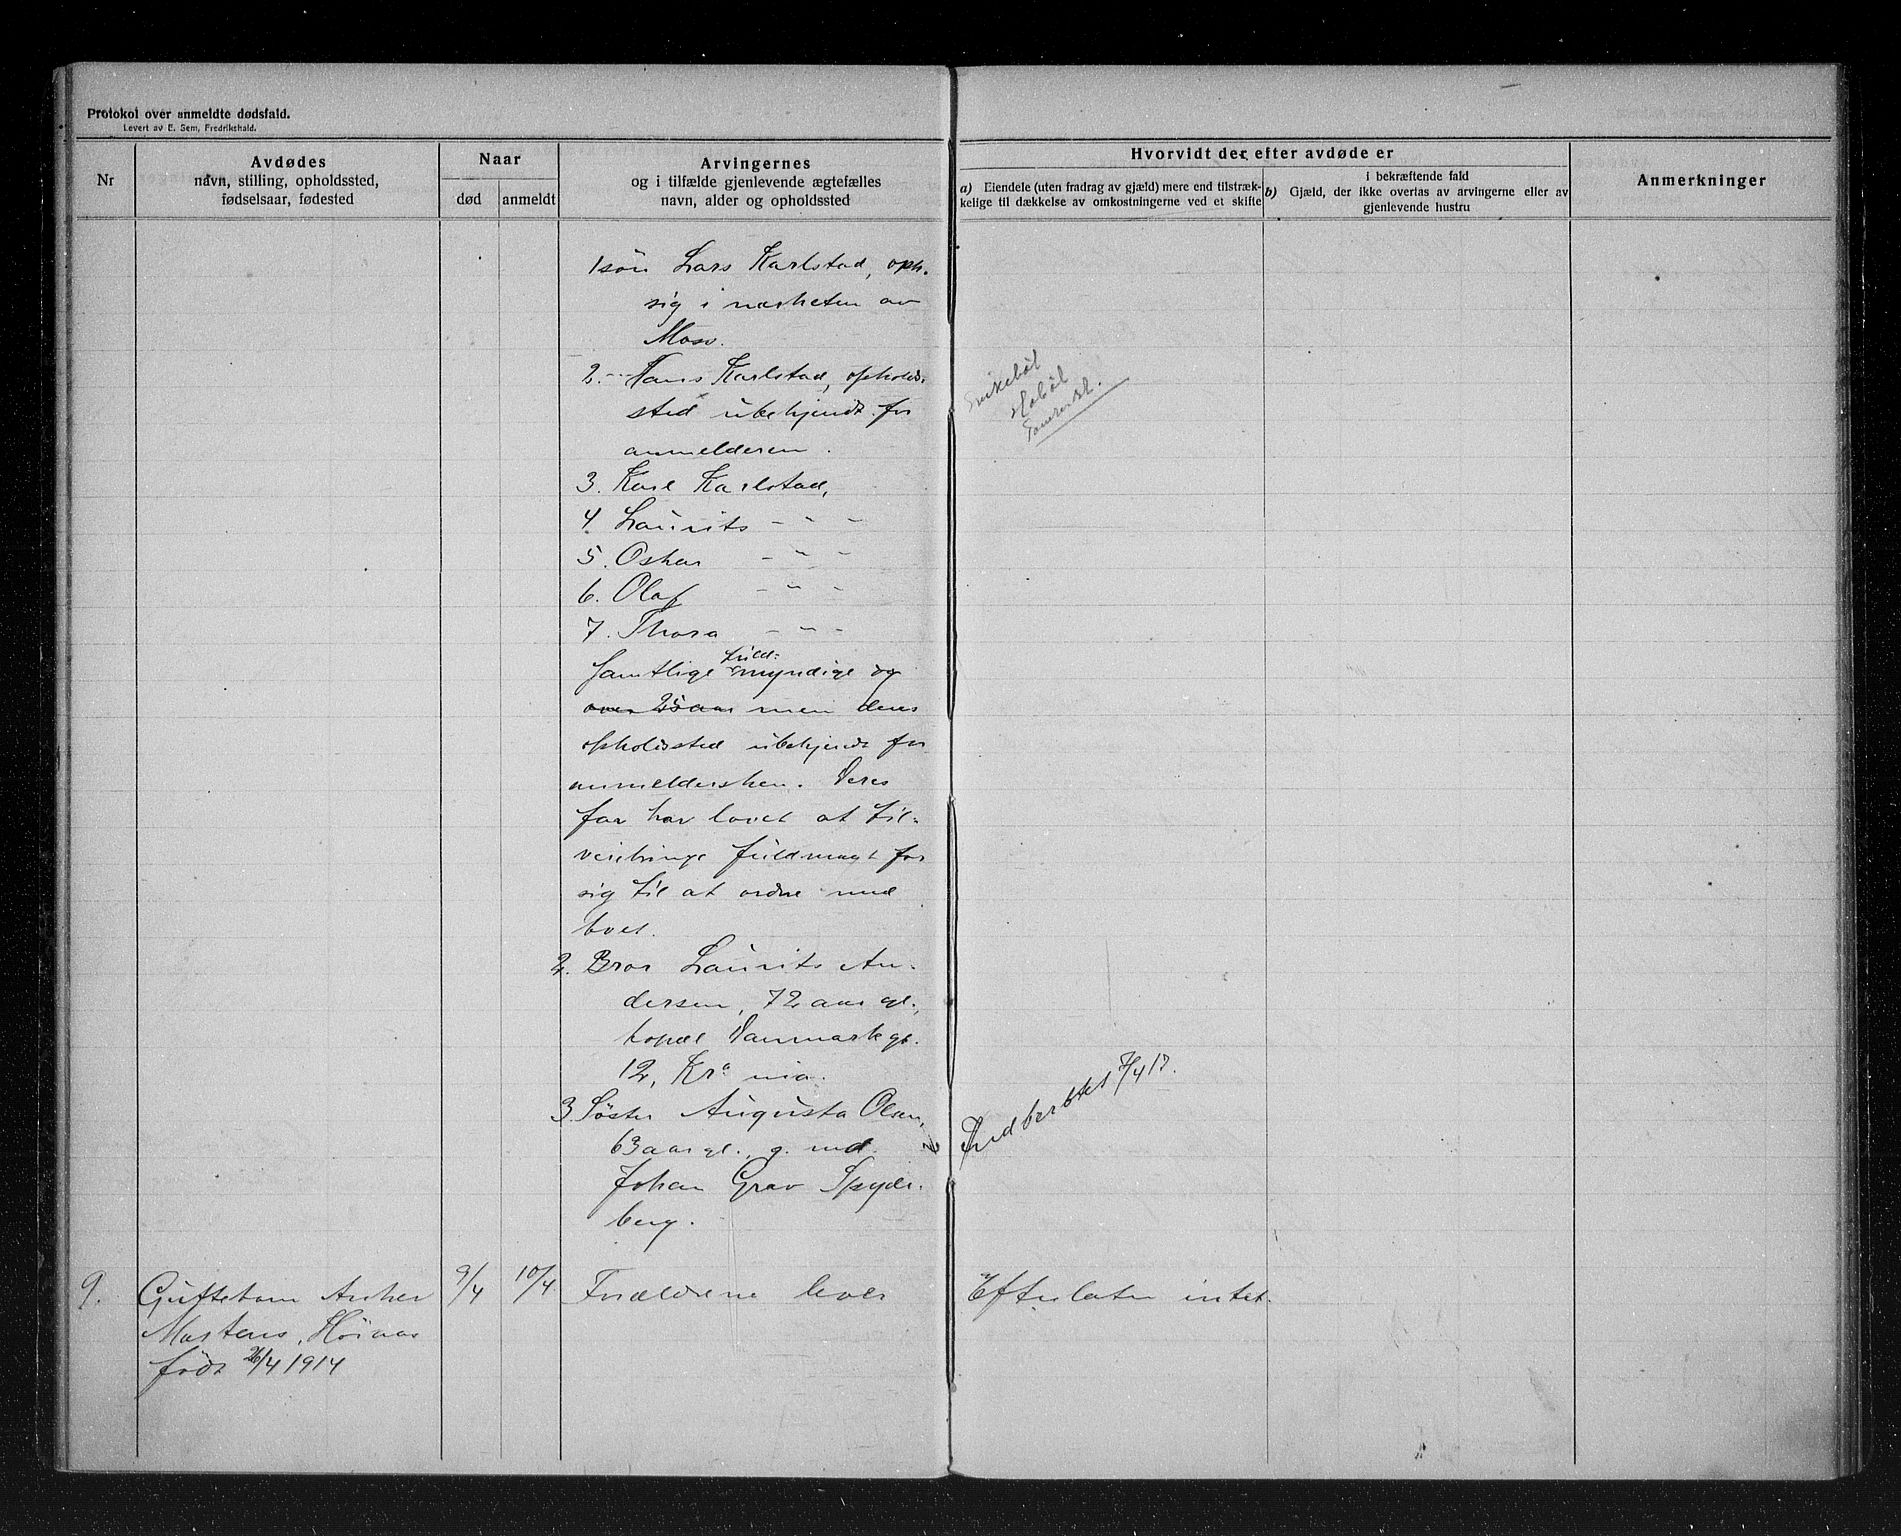 Protokol over anmeldte dødsfald.
Levert av E. Sem, Fredrikshald.
Nr
Avdødes
navn, stilling, opholdssted,
fødselsaar, fødested
Naar
død
anmeldt
Arvingernes
og i tilfælde gjenlevende ægtefælles
navn, alder og opholdssted
Hvorvidt der efter avdøde er
a) Eiendele (uten fradrag av gjæld) mere end tilstræk-
kelige til dækkelse av omkostningerne ved et skifte
i bekræftende fald
b) Gjæld, der ikke overtas av arvingerne eller av
gjenlevende hustru
Anmerkninger
1 søn Lars Karlstad, oph.
sig i nærheten av
Moss.
2. Hans Karlstad, opholds-
sted ubekjendt for
anmelderen.
3. Karl Karlstad,
4. Laurits - " -
5. Oskar - " -
6. Olaf - " -
7. Thora - " -
Samtlige fuld-myndige og
over 25 aar men deres
opholdssted ubekjendt for
anmeldersken. Deres
far har lovet at til-
veiebringe fuldmagt for
sig til at ordne med
boet.
2. Bror Laurits An-
dersen, 72 aar gl.,
Danmarks gt.
12, Kr.a nia.
3. Søster Augusta Olsen,
63 aar gl., g. med
Johan Grav Spyde-
berg.
Hobøl
Indberettet 7/4 17.
9.
Guttebarn Anker
Martens, Höiaas
født 26/4 1914
9/4
10/4
Forældrene lever
Efterlater intet.